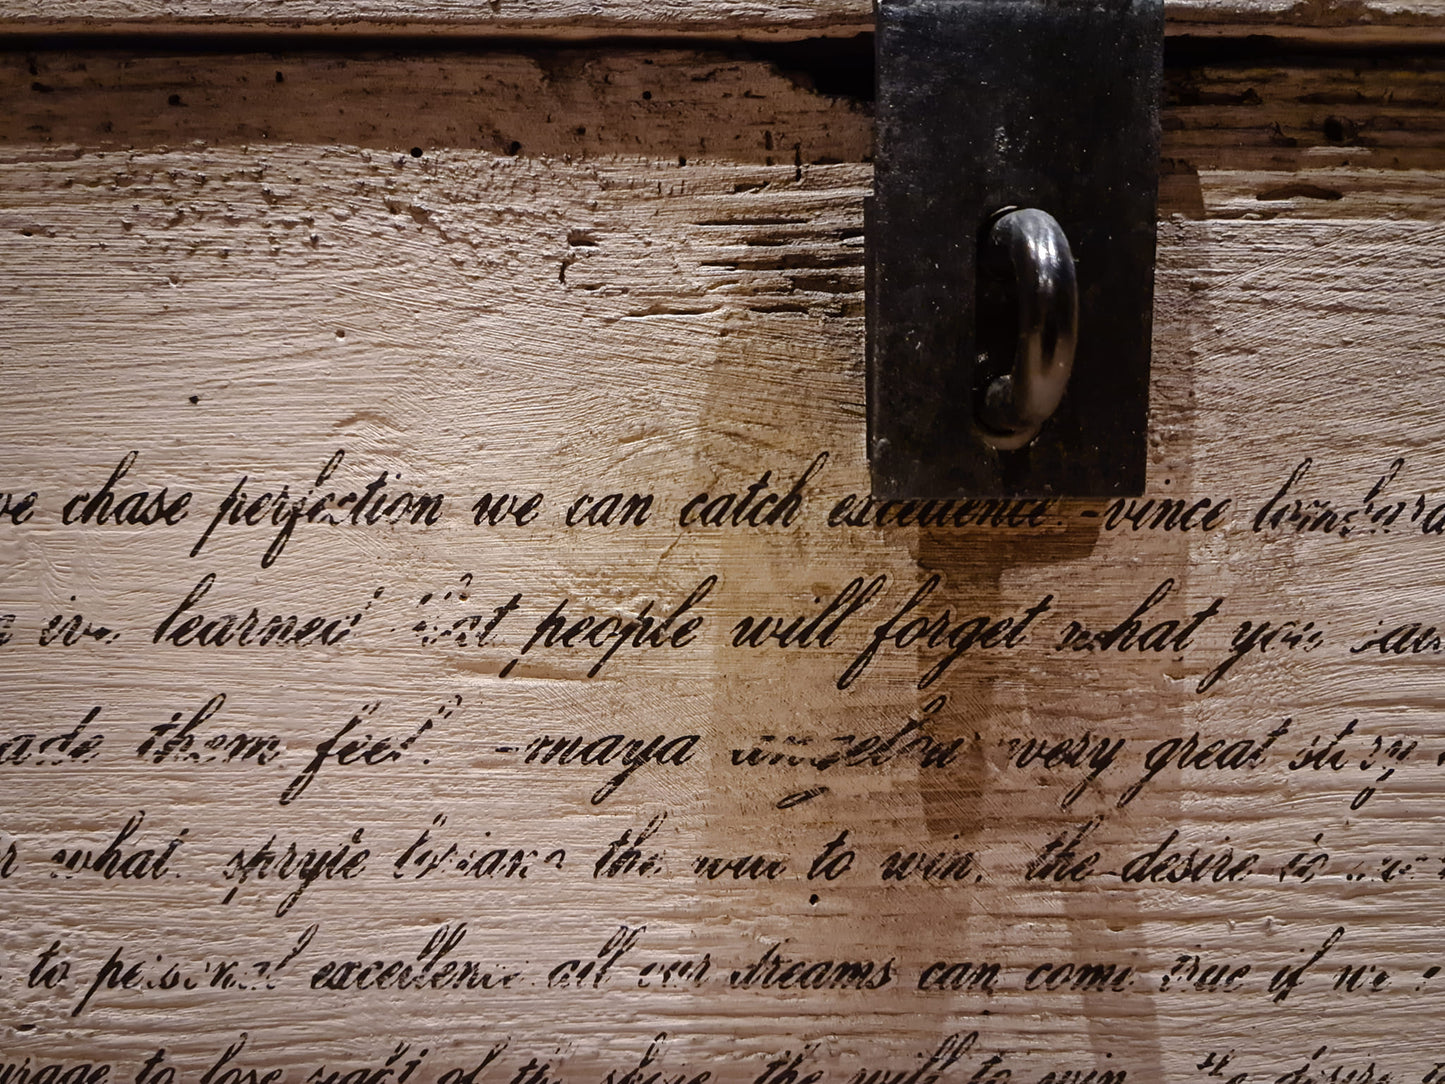 ve chase perfection we can catch excellence. -vince lombard
i've learned that people will forget what you
ade them feel". -maya angelou very great story
what the will to win, the desire
to personal excellence all our dreams can come true if we
urage to lose sight of the shore the will to win desire